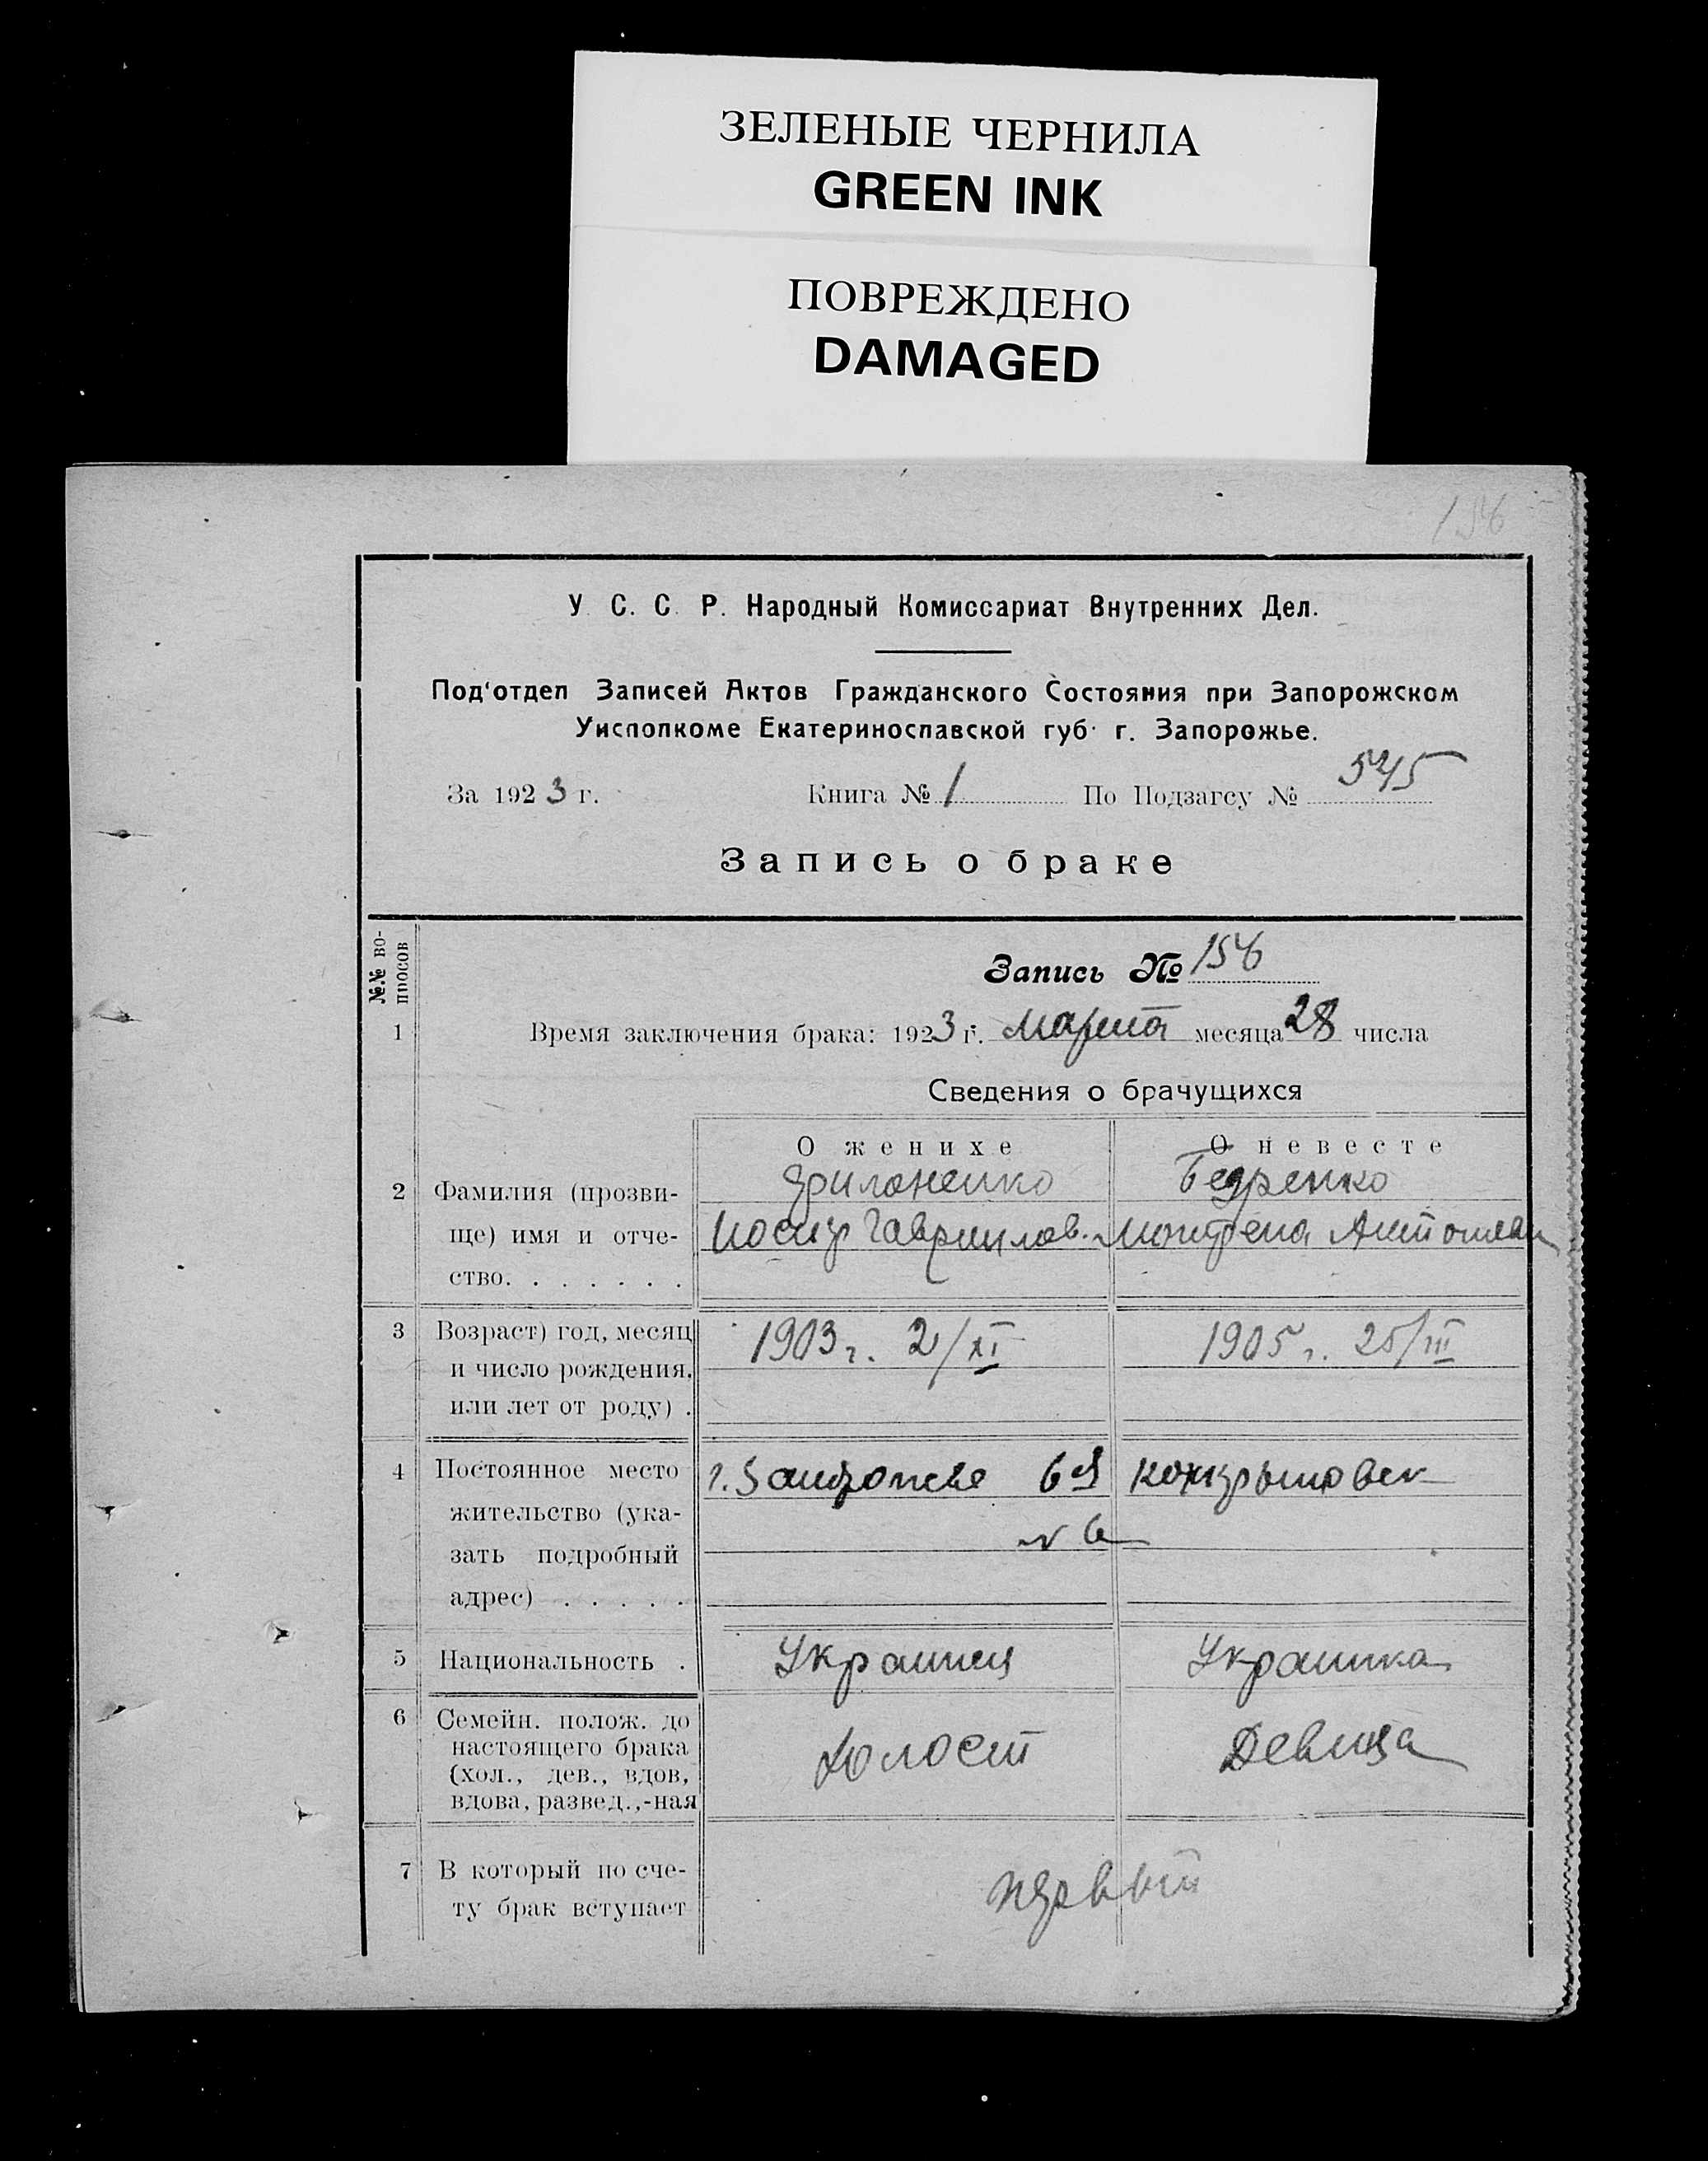 ЗЕЛЕНЫЕ ЧЕРНИЛА
GREEN INK
ПОВРЕЖДЕНО
DAMAGED
156
У. С. С. Р. Народный Комиссариат Внутренних Дел.
Под'отдел Записей Актов Гражданского Состояния при Запорожском
Уисполкоме Екатеринославской губ. г. Запорожье.
За 1923 г. Книга № 1 По Подзагсу № 545
Запись о браке
№№ во-
просов
Запись № 156
1 Время заключения брака: 1923 г. Марта месяца 28 числа
Сведения о брачущихся
О женихе О невесте
2 Фамилия (прозви-
ще) имя и отче-
ство. . . . . . .
Иосиф Гавриилов.
3 Возраст) год, месяц 1903 г. 2/XI 1905 г. 25/III
и число рождения,
или лет от роду) .
4 Постоянное место
жительство (ука-
зать подробный
адрес) . . . . .
5 Национальность . Украинец Украинка
6 Семейн. полож. до
настоящего брака
(хол., дев., вдов,
вдова, развед.,-ная
Холост Девица
7 В который по сче-
ту брак вступает
первый